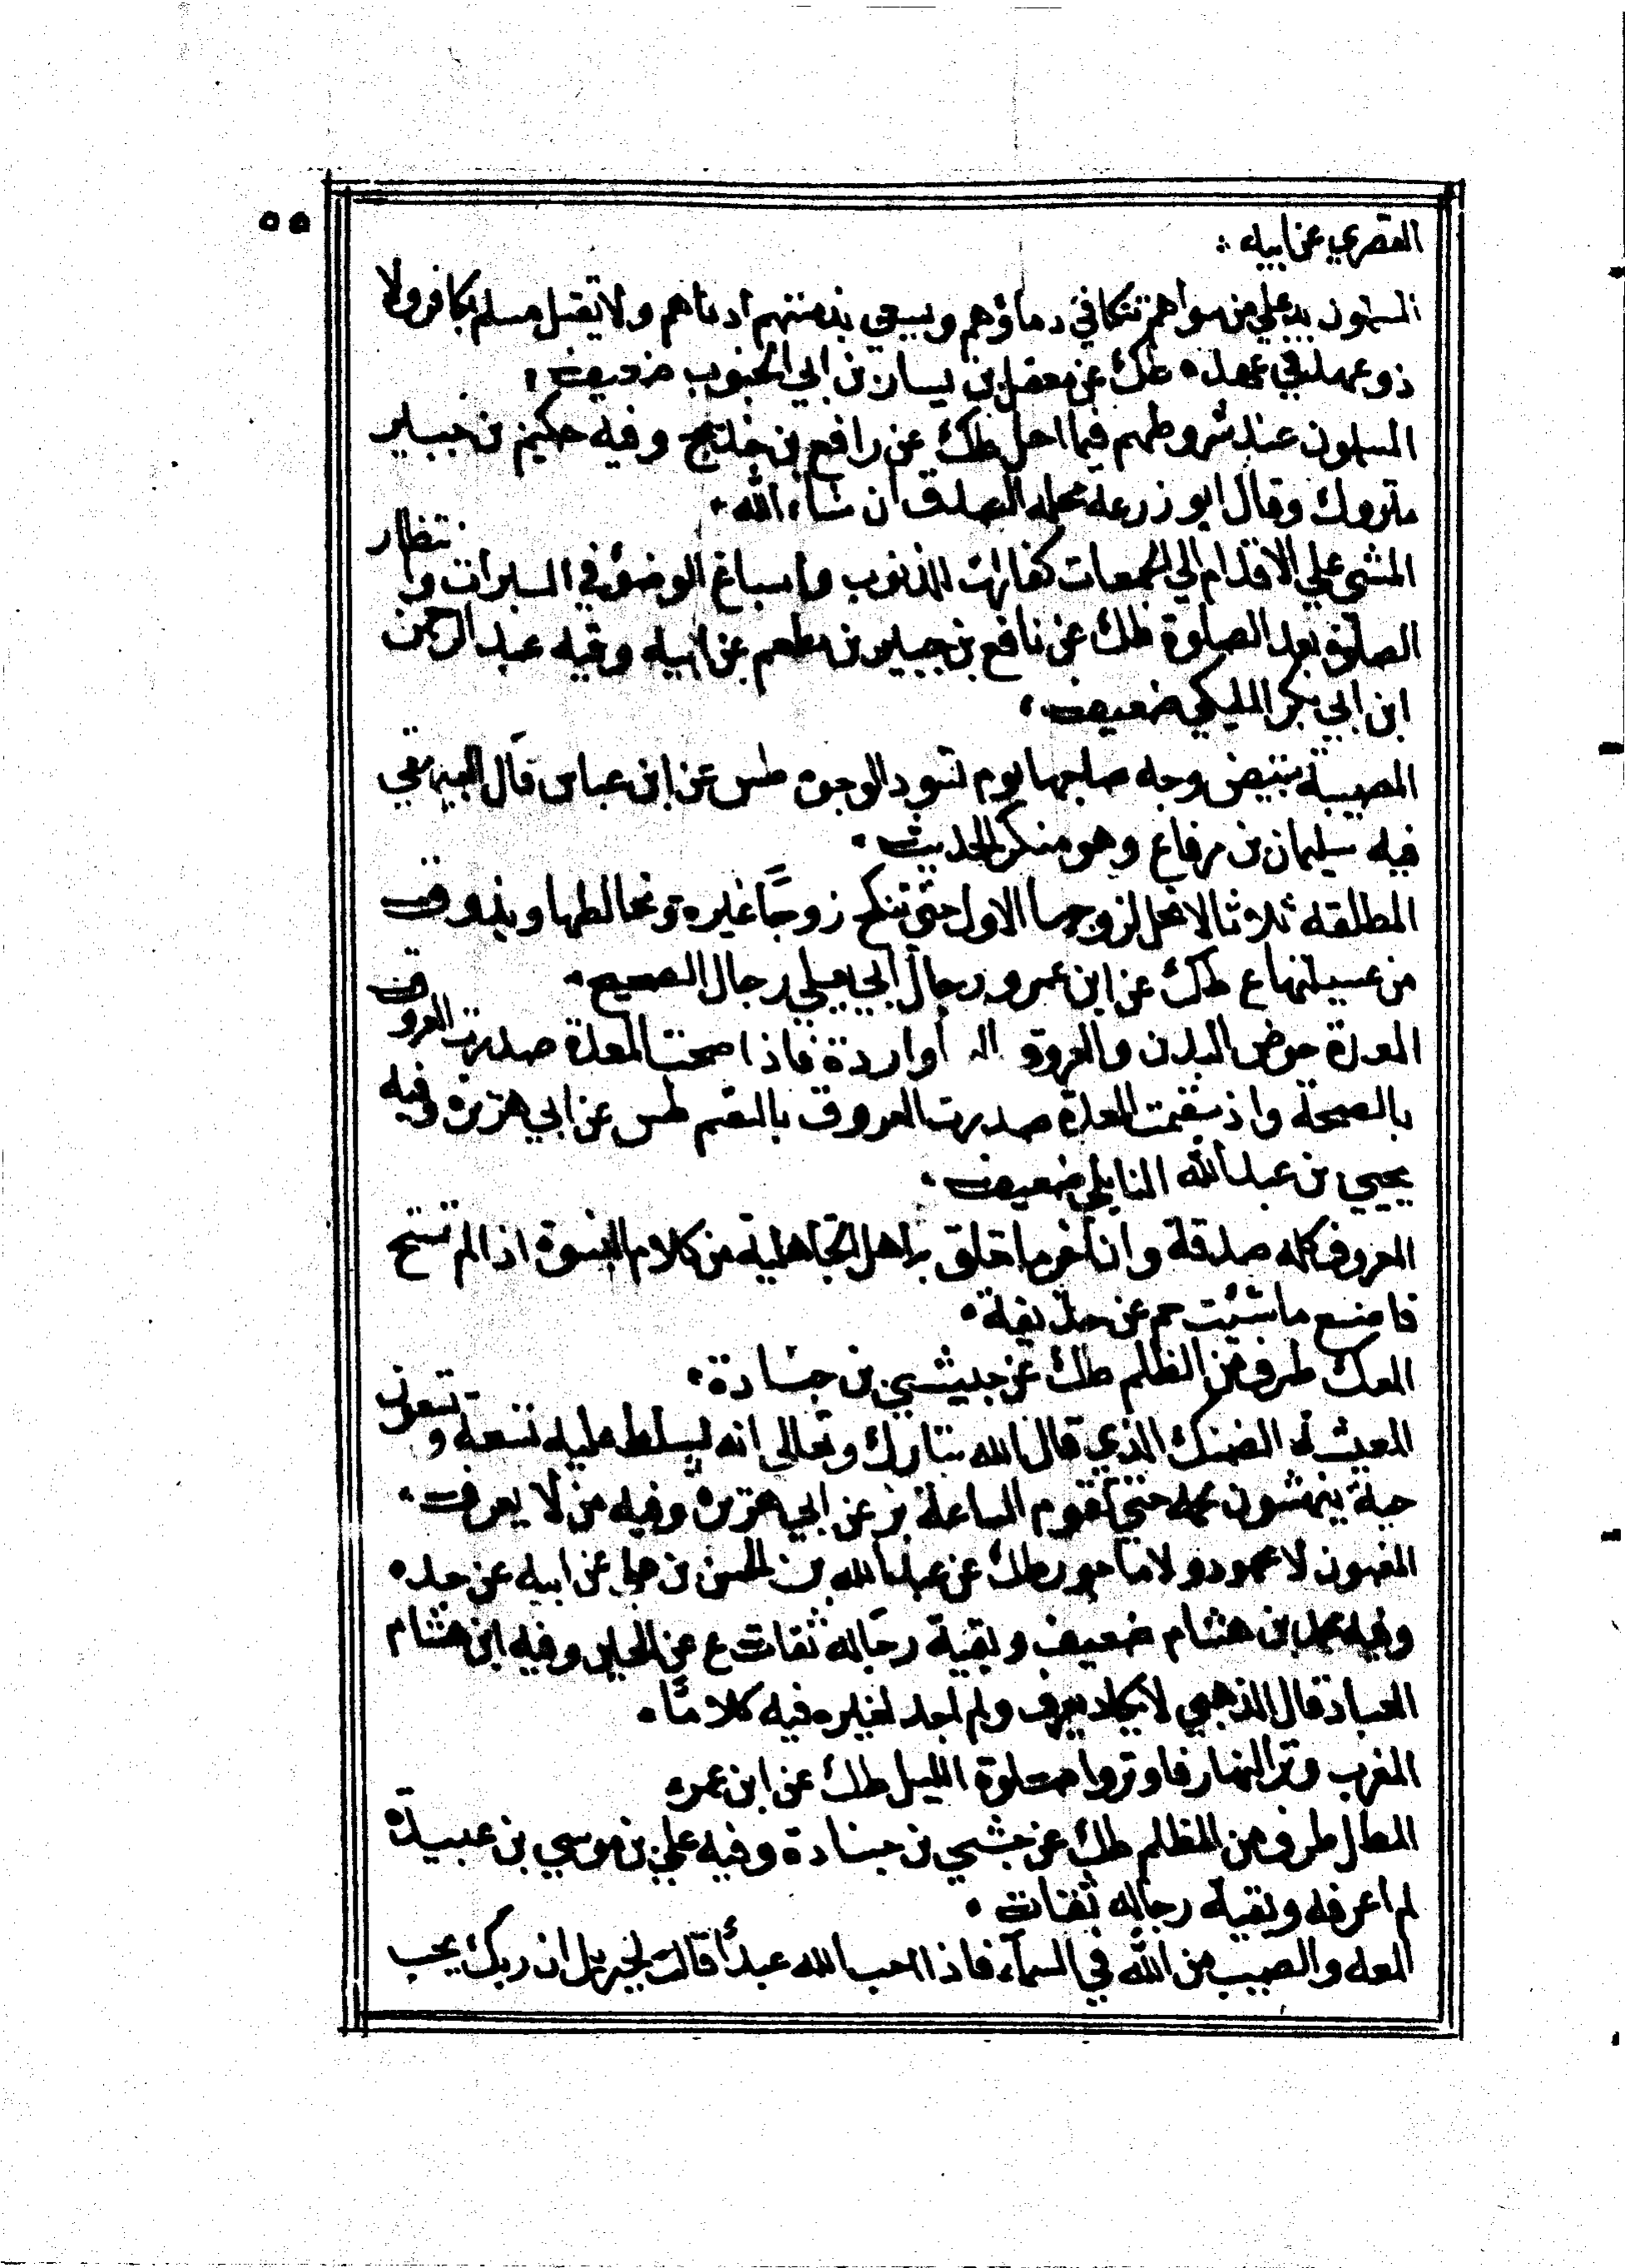 ٥٥
المقصري عن ابيه
المسلمون يد علي من سواهم تتكافي دماؤهم ويسعي بذمتهم ادناهم ولا يقتل مسلم بكافر ولا
ذو عهد في عهده طك عن معقل بن يسار بن ابي الجنوب ضعيف
المسلمون عند شروطهم فيما احل طك عن رافع بن خديج وفيه حكيم بن جبير
متروك وقال ابو زرعة محله الصدق ان شاء الله
المشي علي الاقدام الي الجمعات كفارات للذنوب واسباغ الوضوء في السبرات وانتظار
الصلوة بعد الصلوة طك عن نافع بن جبير بن مطعم عن ابيه وفيه عبد الرحمن
ابن ابي بكر المليكي ضعيف
المصيبة تبيض وجه صاحبها يوم تسود الوجوه طس عن ابن عباس قال البيهقي
فيه سليمان بن مرقاع وهو منكر الحديث
المطلقه ثلاثا لا تحل لزوجها الاول حتي تنكح زوجًا غيره ويخالطها ويذوق
من عسيلتها ع طك عن ابن عمر ورجال ابي يعلي رجال الصحيح
المعدة حوض البدن والعروق واردة فاذا صحت المعدة صدرت العروق
بالصحة واذ سقمت المعدة صدرت العروق بالسقم طس عن ابي هريرة وفيه
يحيي بن عبد الله البابلي ضعيف
المعروف كله صدقة وان اخر ما تعلق به اهل الجاهلية من كلام النبوة اذا لم تستح
فاصنع ما شئت حم عن حذيفة
المعك طرف من الظلم طك عن حبيشي بن جنادة
المعيشة الضنك الذي قال الله تبارك وتعالي انه يسلط عليه تسعة وتسعون
حية ينهشون لحمه حتي تقوم الساعة بز عن ابي هريرة وفيه من لا يعرف
المغبون لا محمود ولا ماجور طك عن عبد الله بن الحسن بن عن ابيه عن جده
وفيه محمد بن هشام ضعيف وبقية رجاله ثقات ع عن وفيه ابن هشام
القناد قال الذهبي لا يكاد يعرف ولم اجد لغيره فيه كلامًا
المغرب وتر النهار فاوتروا صلوة الليل طك عن ابن عمر
المطل طرف من الظلم طك عن حبشي بن جنادة وفيه علي بن موسي بن عبيدة
لم اعرفه وبقية رجاله ثقات
المقه والصيت من الله في السماء فاذا احب الله عبدًا قال لجبريل ان ربك يحب